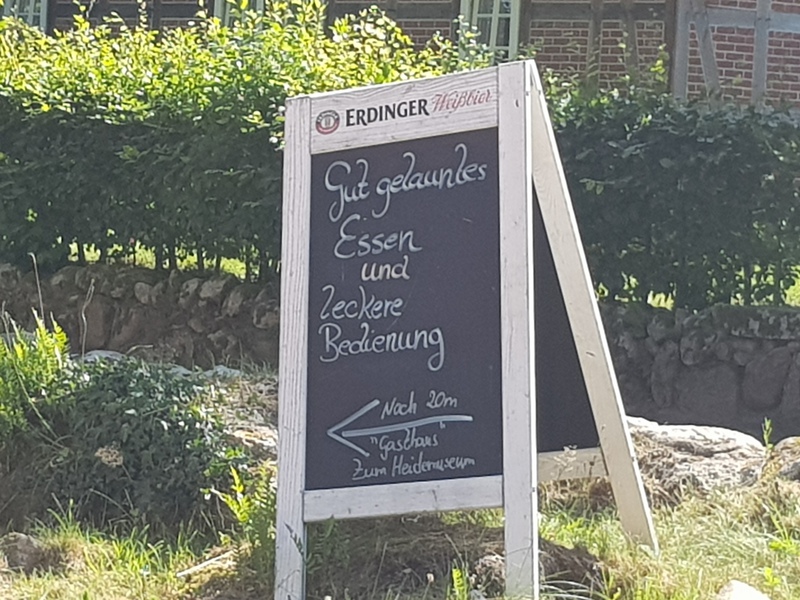 ERDINGER Weißbier
Gut gelauntes
Essen
und
leckere
Bedienung
Noch 20m
"Gasthaus"
Zum Heidemuseum